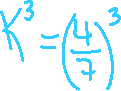 K³ = (4/7)³